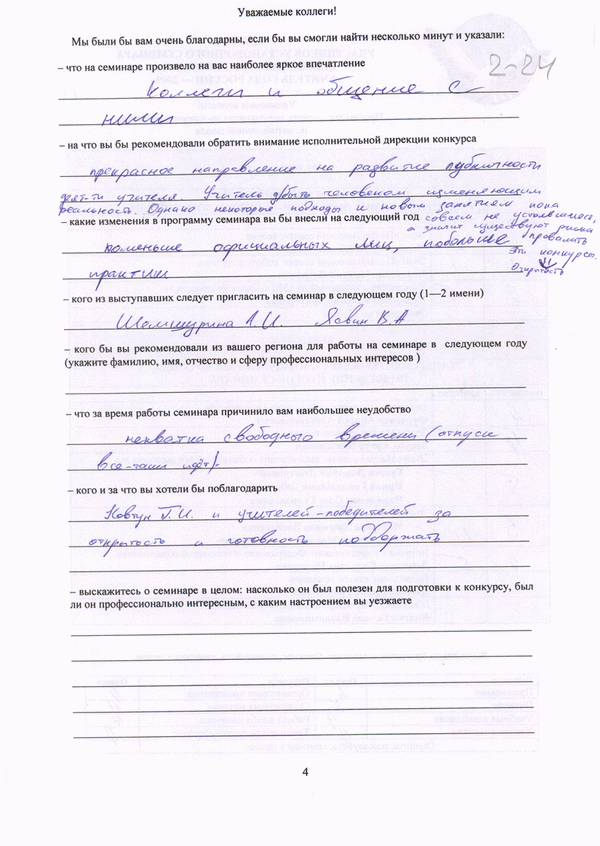 Уважаемые коллеги!
Мы были бы вам очень благодарны, если бы вы смогли найти несколько минут и указали:
– что на семинаре произвело на вас наиболее яркое впечатление
2-24
Коллеги и общение с
ними
– на что вы бы рекомендовали обратить внимание исполнительной дирекции конкурса
прекрасное направление на развитие публичности
деят-ти учителя. Учитель д/быть человеком изменяющим
реальность. Однако некоторые подходы и новым занятием пока
– какие изменения в программу семинара вы бы внесли на следующий год
совсем не установлено,
а значит существуют риски
поменьше официальных лиц, побольше
провалить
эти конкурсы.
практики
– кого из выступавших следует пригласить на семинар в следующем году (1—2 имени)
Шамшурина А.И. Ясвин В.А
– кого бы вы рекомендовали из вашего региона для работы на семинаре в следующем году
(укажите фамилию, имя, отчество и сферу профессиональных интересов )
– что за время работы семинара причинило вам наибольшее неудобство
нехватка свободного времени (отпуск
все-таки идёт).
– кого и за что вы хотели бы поблагодарить
Ковтун Т.И. и учителей-победителей за
открытость и готовность поддержать
– выскажитесь о семинаре в целом: насколько он был полезен для подготовки к конкурсу, был
ли он профессионально интересным, с каким настроением вы уезжаете
4